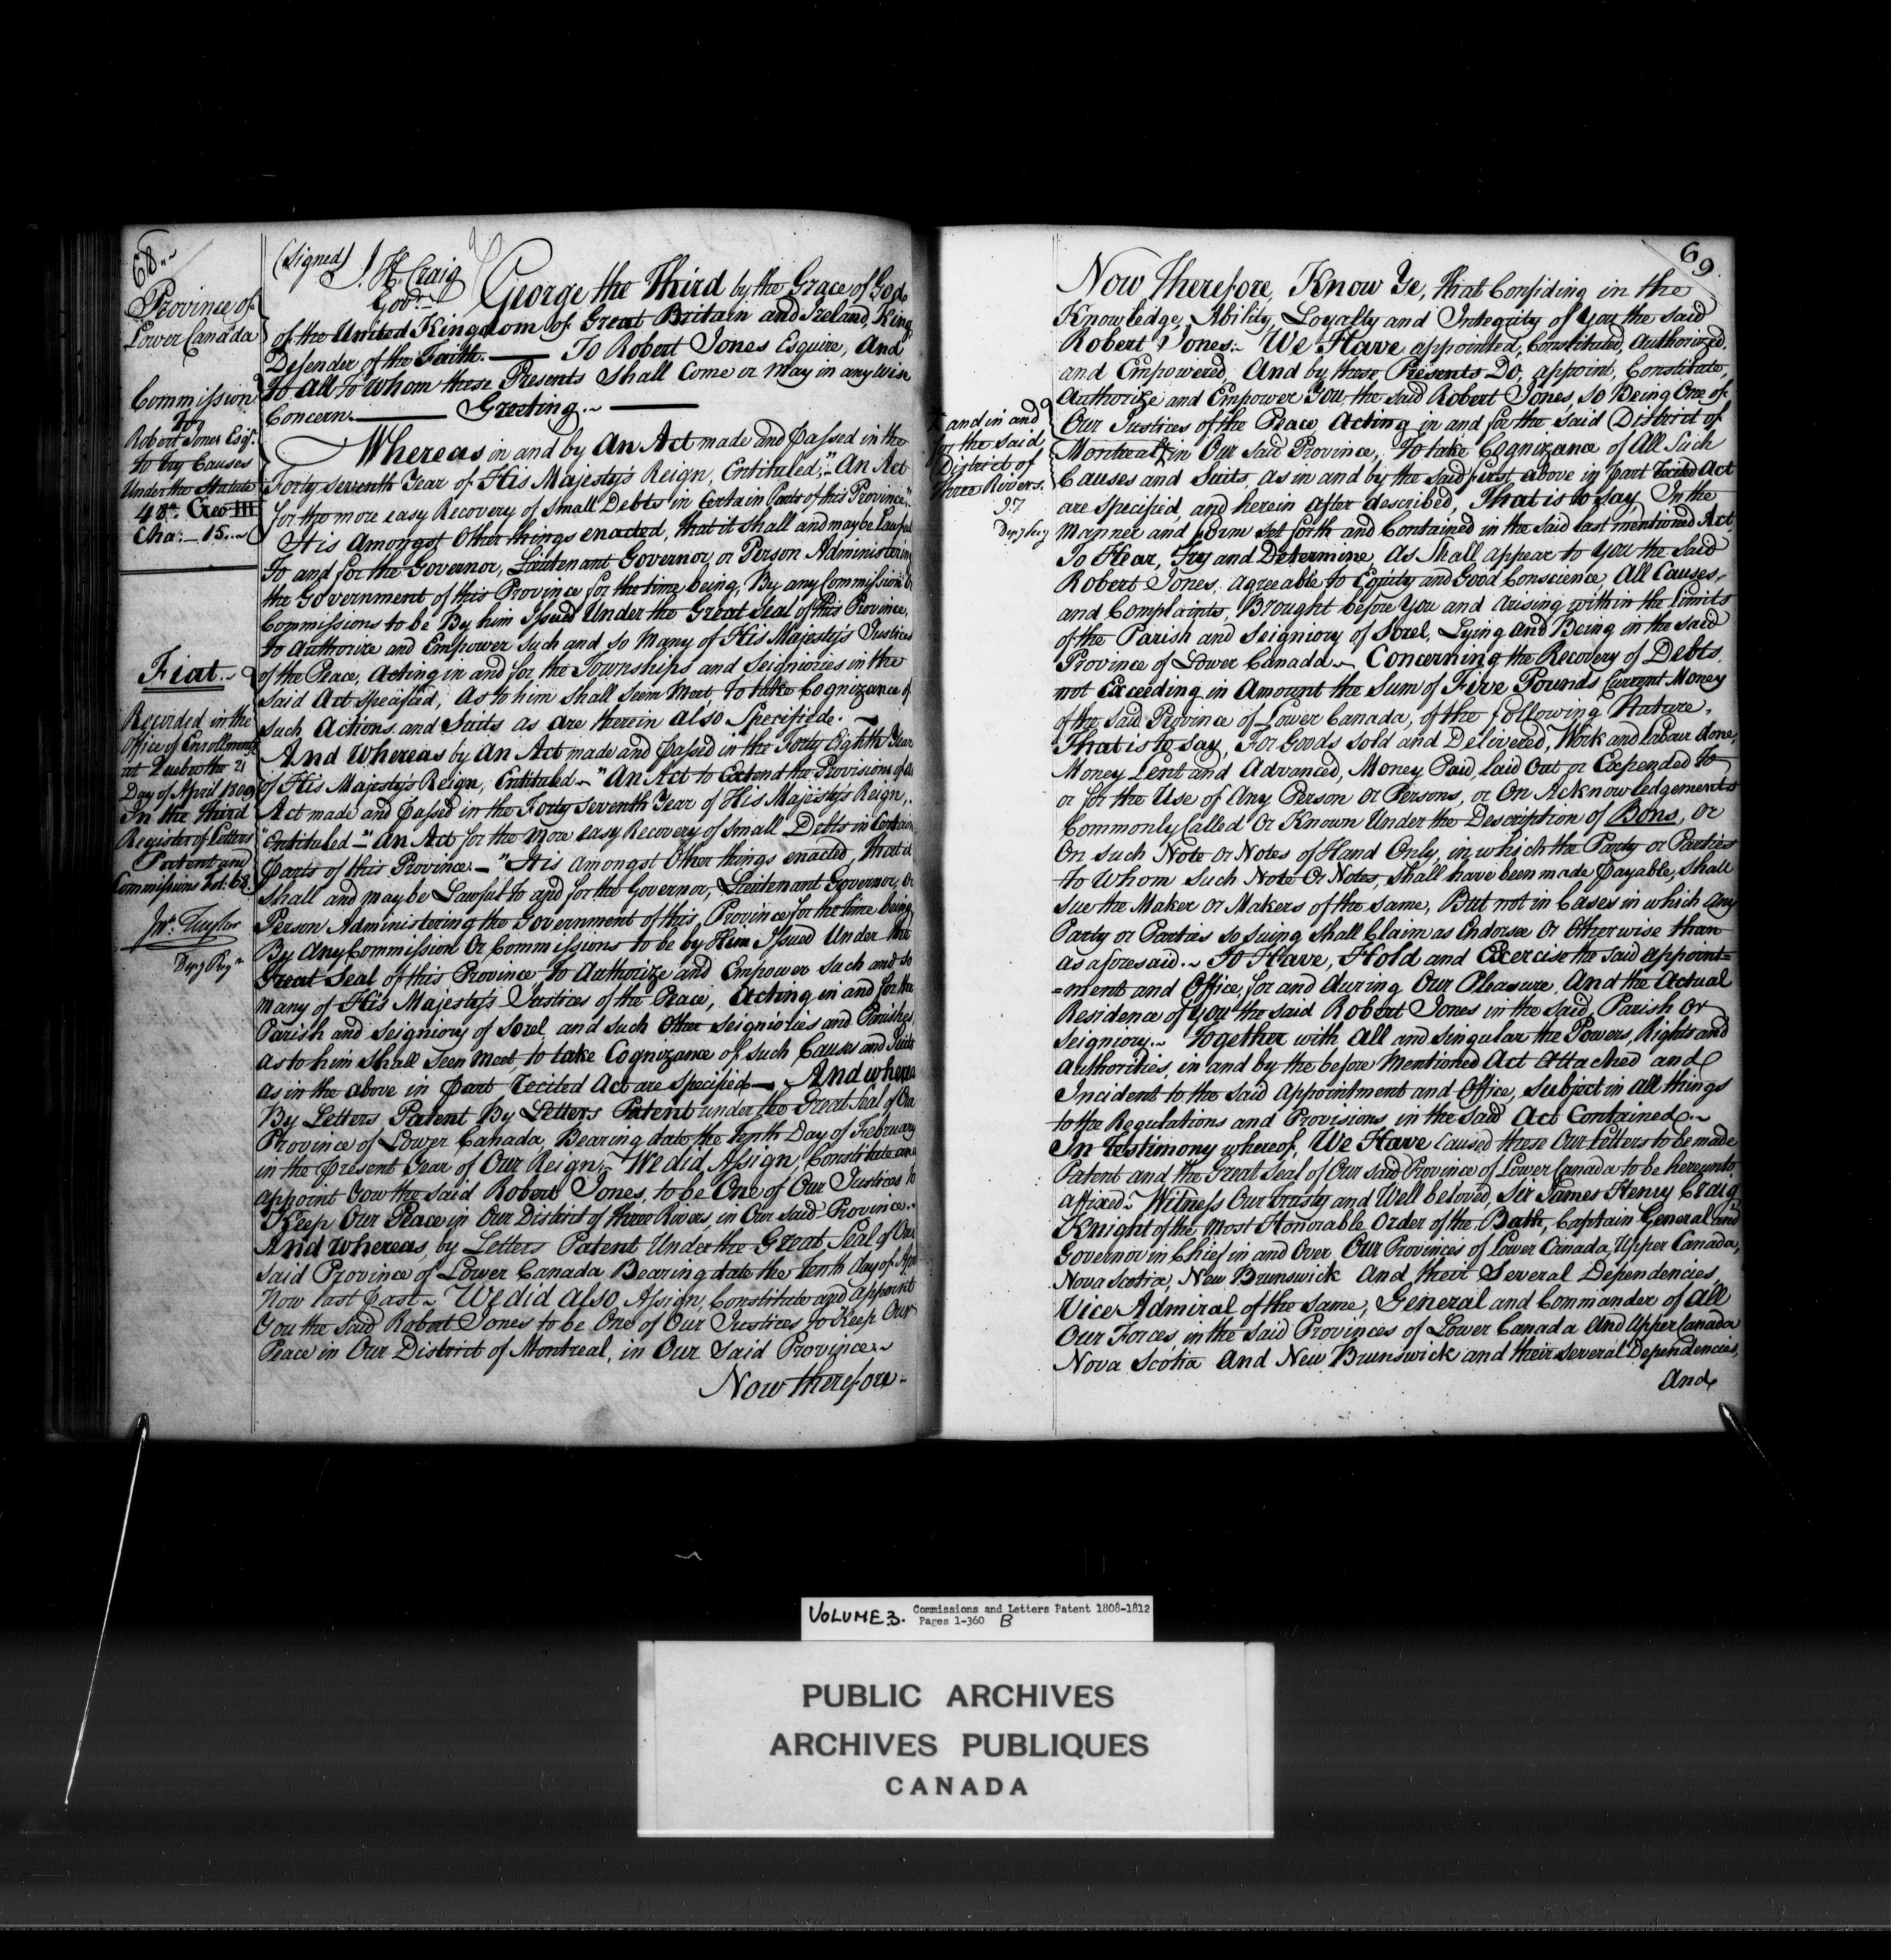 68..~
Province of
Lower Canada
Commission
To
Robert Jones Esqr.
to try Causes
Under the Statute
48th. Geo III
Cha:_15..~
Fiat..~
Recorded in the
Office of Enrollments
at Quebec the 21
Day of April 1809
In the third
Register of Letters
Patent and
Commissions Fol: 68.
Jno. Taylor
Depy Regr
(Signed) J. H. Craig
Govr.~
George the Third by the Grace of God,
of the United Kingdom of Great Britain and Ireland, King
Defender of the Faith.— To Robert Jones Esquire, And
To All to Whom these Presents Shall Come or may in any wise
Concern.— Greeting.~—
Whereas in and by An Act made and passed in the
Forty seventh Year of His Majesty's Reign, Entituled," An Act
for the more easy Recovery of Small Debts in Certain Parts of this Province,"
It is Amongst Other things enacted, that it shall and may be Lawful
to and for the Governor, Lieutenant Governor or Person Administering
the Government of this Province for the time being, By any Commission Or
Commissions to be By him Issued Under the Great Seal of this Province,
to Authorize and Empower Such and so Many of His Majesty's Justices
of the Peace, Acting in and for the Townships and Seigniories in the
Said Act specified, As to him Shall Seem Meet, to take Cognizance of
such Actions and Suits as are therein also Specified.~
And Whereas by An Act made and passed in the Forty Eighth Year
of His Majesty's Reign, Entituled ~ "An Act to Extend the Provisions of An
Act made and passed in the Forty Seventh Year of His Majesty's Reign,
"Entituled—" An Act for the More easy Recovery of Small Debts in Certain
Parts of this Province.—" It is amongst Other things enacted, that it
shall and may be Lawful to and for the Governor, Lieutenant Governor, Or
Person Administering the Government of this, Province for the time being
By Any Commission Or Commissions to be by Him Issued Under the
Great Seal of this Province to Authorize and Empower such and so
many of His Majesty's Justices of the Peace, Acting in and for the
Parish and Seigniory of Sorel and such Other Seigniories and Parishes,
As to him Shall Seem Meet, to take Cognizance of such Causes and Suits
as in the above in part recited Act are specified—~ And whereas
By Letters Patent By Letters Patent under the Great Seal of Our
Province of Lower Canada, Bearing date the tenth Day of February
in the present Year of Our Reign,~ We did Assign, Constitute and
appoint You the said Robert Jones, to be One of Our Justices to
Keep Our Peace in Our District of three Rivers, in Our Said Province..
And whereas, by Letters Patent Under the Great Seal of Our
said Province of Lower Canada Bearing date the tenth day of April
Now last past ~ We did also, Assign, Constitute and appoint
You the said Robert Jones to be One of Our Justices to Keep Our
Peace in Our District of Montreal, in Our Said Province.~
Now therefore~
69.
and in and
for the said
District of
three Rivers.
Now therefore, Know Ye, that Confiding in the
Knowledge, Ability, Loyalty and Integrity of You the Said
Robert Jones:~ We Have appointed, Constituted, Authorized,
and Empowered, And by these Presents Do, appoint, Constitute,
Authorize and Empower You the said Robert Jones, so Being One of
Our Justices of the Peace Acting in and for the said District of
Montreal, in Our Said Province, To take Cognizance of All Such
Causes and Suits, as in and by the said first above in part recited Act
are specified, and herein After described, That is to say, In the
Manner and form set forth and Contained in the said last mentioned Act.
To Hear, Try and Determine, As Shall appear to You the said
Robert Jones, agreeable to Equity and Good Conscience, All Causes,
and Complaints, Brought before You and Arising within the limits
of the Parish and Seigniory of Sorel, Lying and Being in the said
Province of Lower Canada.~ Concerning the Recovery of Debts,
not Exceeding in Amount the Sum of Five Pounds Current Money
of the said Province of Lower Canada, of the following Nature,
That is to say, For Goods sold and Delivered, Work and Labour done,
Money Lent and Advanced, Money Paid, laid Out or Expended to
or for the Use of Any Person Or Persons, or On Acknowledgements
Commonly Called Or Known Under the Description of Bons, Or
On such Note Or Notes of Hand Only, in which the Party or Parties
to Whom such Note Or Notes, Shall have been made payable, Shall
sue the Maker or Makers of the same, But not in Cases in which any
Party or Parties so suing Shall Claim as Endorsee Or Otherwise than
as aforesaid.~ To Have, Hold and Exercise the said appoint=
=ment and Office, for and during Our Pleasure, And the Actual
Residence of You the said Robert Jones in the said, Parish Or
Seigniory.~ Together with All and Singular the Powers, Rights and
Authorities, in and by the before Mentioned Act Attached and
Incident to the said Appointment and Office, Subject in all things
to the Regulations and Provisions in the said Act Contained.~
In Testimony whereof, We Have Caused these Our Letters to be made
Patent and the Great Seal of Our said Province of Lower Canada to be hereunto
affixed.~ Witness Our trusty and Well beloved, Sir James Henry Craig
Knight of the Most Honorable Order of the Bath, Captain General and
Governor in Chief in and Over Our Provinces of Lower Canada, Upper Canada,
Nova Scotia, New Brunswick And their Several Dependencies,
Vice Admiral of the same, General and Commander of All
Our Forces, in the said Provinces of Lower Canada And Upper Canada
Nova Scotia And New Brunswick and their several Dependencies,
And
VOLUME 3. Commissions and Letters Patent 1808-1812
Pages 1-360 B
PUBLIC ARCHIVES
ARCHIVES PUBLIQUES
CANADA